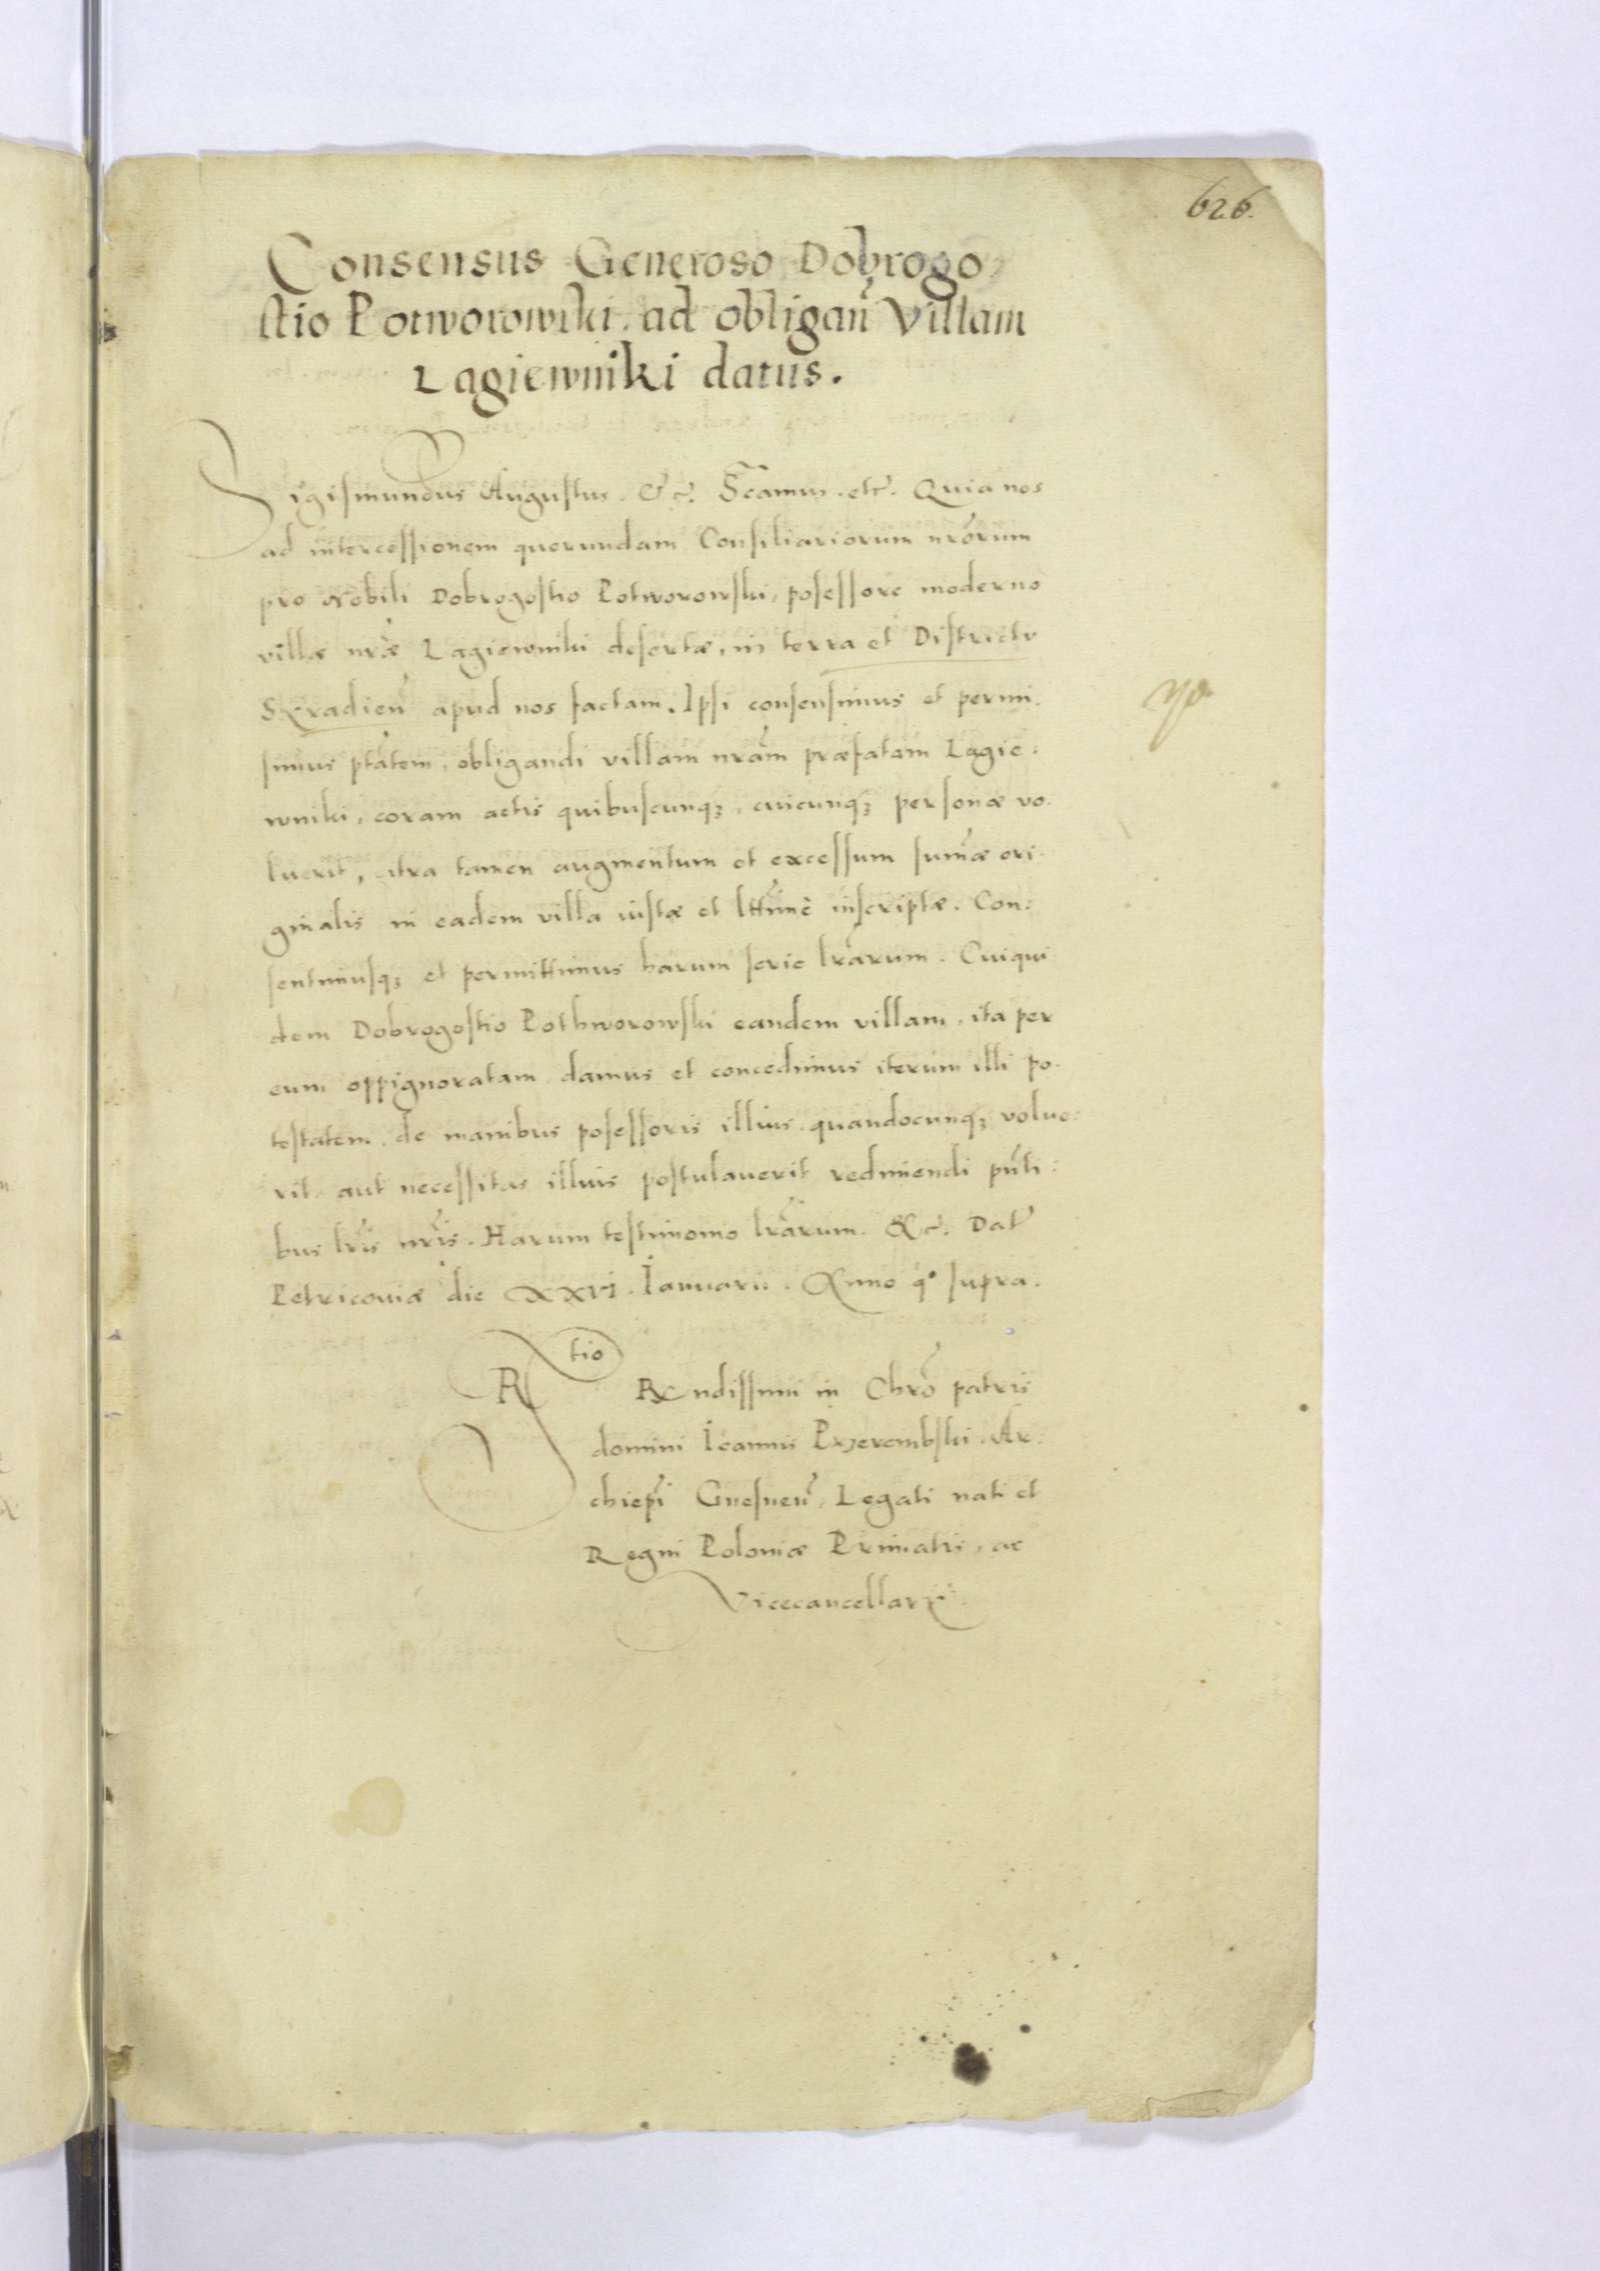 626.
Consensus Generoso Dobrogo
stio Potworowski. ad obligan̄ Villam
Lagiewniki datus.
Sigismundus Augustus. &c̄. Scamus. etc̄. Quia nos
ad intercessionem quorundam Consiliariorum nr̄orum
pro Nobili Dobrogostio Potworowski, posessore moderno
villæ nr̄æ Lagiewniki desertæ, in terra et Districtu
Syradien̄ apud nos factam. Ipsi consensimus et permi.
simus ptātem, obligandi villam nrām præfatam Lagie.
wniki, coram actis quibuscunqꝫ, cuicunqꝫ personæ vo.
luerit, citra tamen augmentum et excessum sum̄æ ori.
ginalis in eadem villa iustæ et lttimè inscriptæ. Con.
sentimusqꝫ et permittimus harum serie lrārum. Cuiqui
dem Dobrogostio Pothworowski eandem villam, ita per
eum oppignoratam, damus et concedimus iterum illi po.
testatem, de manibus posessoris illius, quandocunqꝫ volue.
rit, aut necessitas illius postulauerit redimendi pn̄ti.
bus lrīs nrīs. Harum testimonio lrārum. &c̄. Dat̄
Petricouiæ die XXVI. Ianuarii. Anno qº supra.
R tio
Rxndissimi in Chrō patris
domini Ioannis Przerembski. Ar.
chiepī Gnesnen̄, Legati nati et
Regni Poloniæ Primatis, ac
Vicecancellarii.